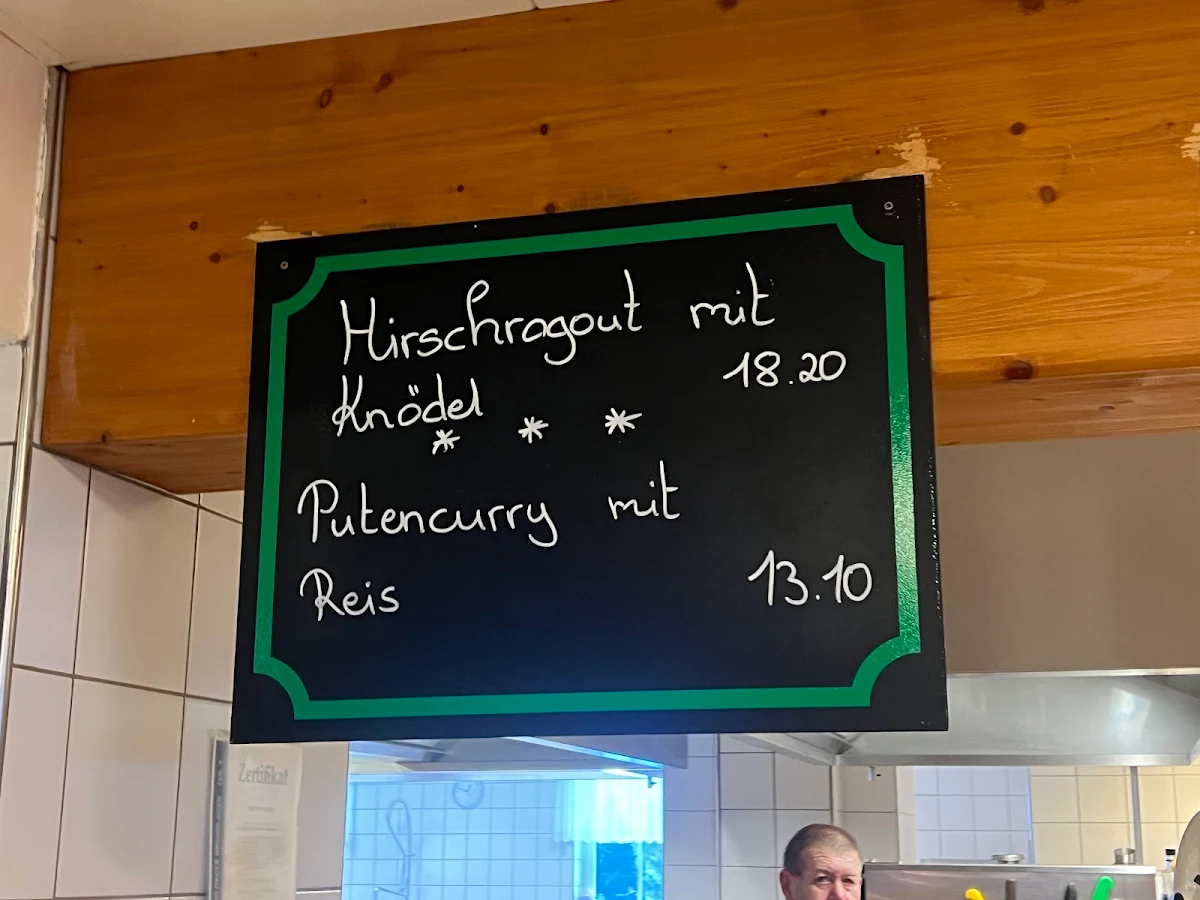 Hirschragout mit
Knödel 18.20
* * *
Putencurry mit
Reis 13.10
Zertifikat